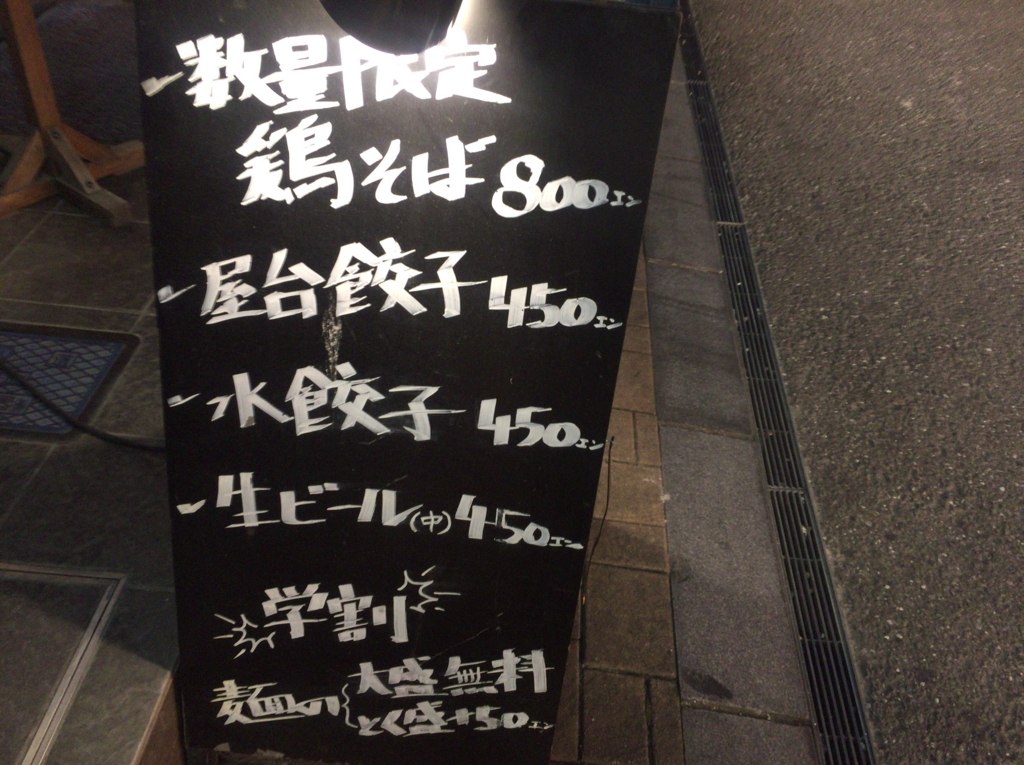 数量限定
鶏そば 800エン
屋台餃子 450エン
水餃子 450エン
生ビール(中) 450エン
学割
麺の{大盛無料
とく盛+50エン